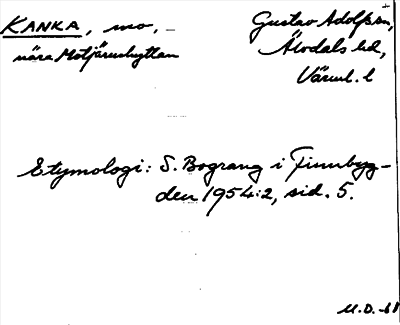 KANKA, mo,
nära Motjärnshyttan
Gustav Adolfs sn,
Älvdals hd,
Värml. l
Etymologi: S. Bograng i Finnbyg-
den 1954:2, sid. 5.
M.D. -61